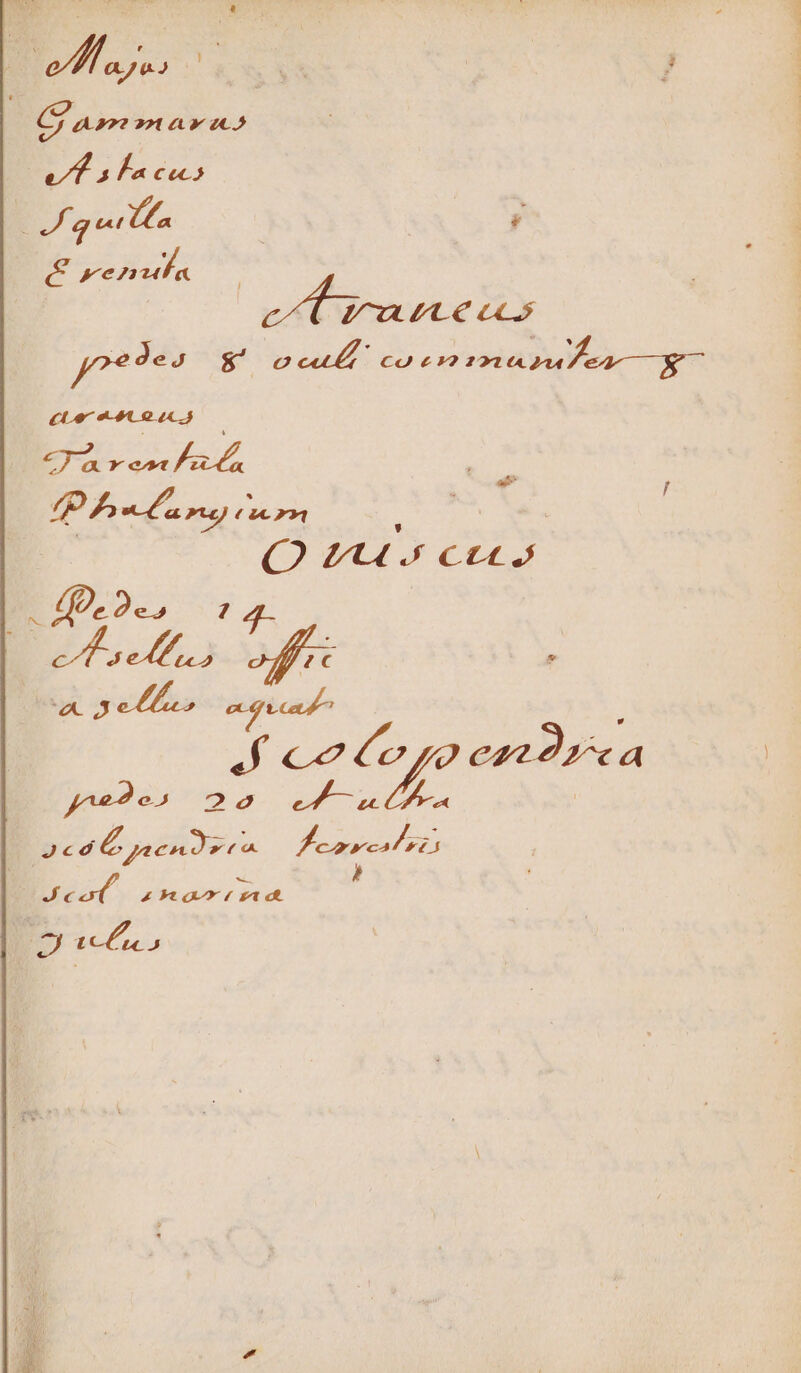 Majas
Gammarus
Astacus
Squilla
Eremita
Araneus
pedes 8 oculi communiter 8
araneus
Tarentula
Phalangium
Oniscus
Pedes 14
Asellus offic
asellus aquat
Scolopendria
pedes 20 et ultra
scolopendria terrestris
Scol marina
Julus